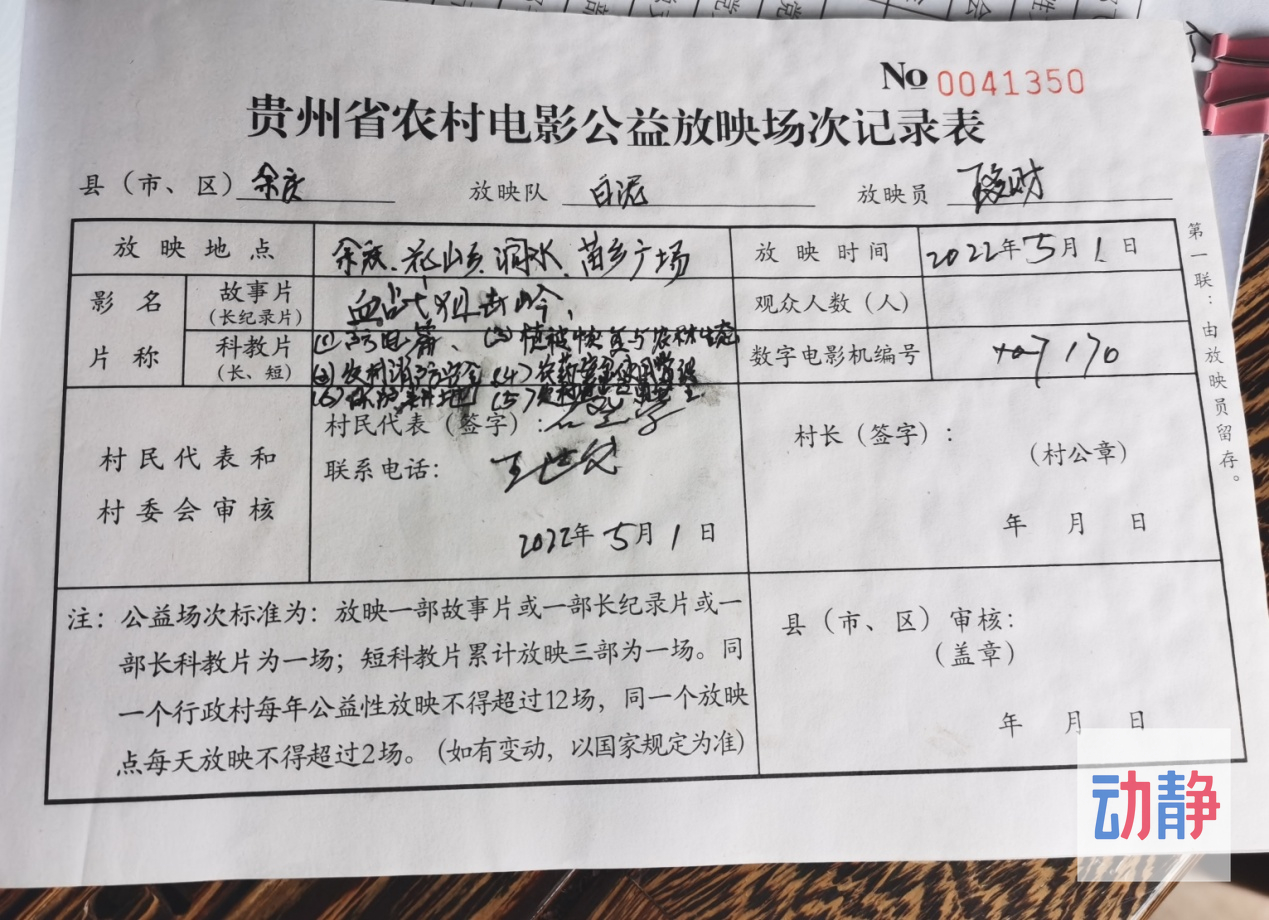 No 0041350
贵州省农村电影公益放映场次记录表
县（市、区）余庆 放映队 白泥 放映员
放映地点 余庆、花山乡、涧水、苗乡广场 放映时间 2022年5月1日
影名 故事片（长纪录片） 血战狙击岭， 观众人数（人）
片称 科教片（长、短） (1) (2)植被 与农村生态 数字电影机编号 7170
(3)农村消防安全 (4)农药安全使用常识
(6)保护耕地 (5)
村民代表和村委会审核
村民代表（签字）：
联系电话：王世
2022年5月1日
村长（签字）：
（村公章）
年 月 日
注：公益场次标准为：放映一部故事片或一部长纪录片或一
部长科教片为一场；短科教片累计放映三部为一场。同
一个行政村每年公益性放映不得超过12场，同一个放映
点每天放映不得超过2场。（如有变动，以国家规定为准）
县（市、区）审核：
（盖章）
年 月 日
第一联：由放映员留存。
动静